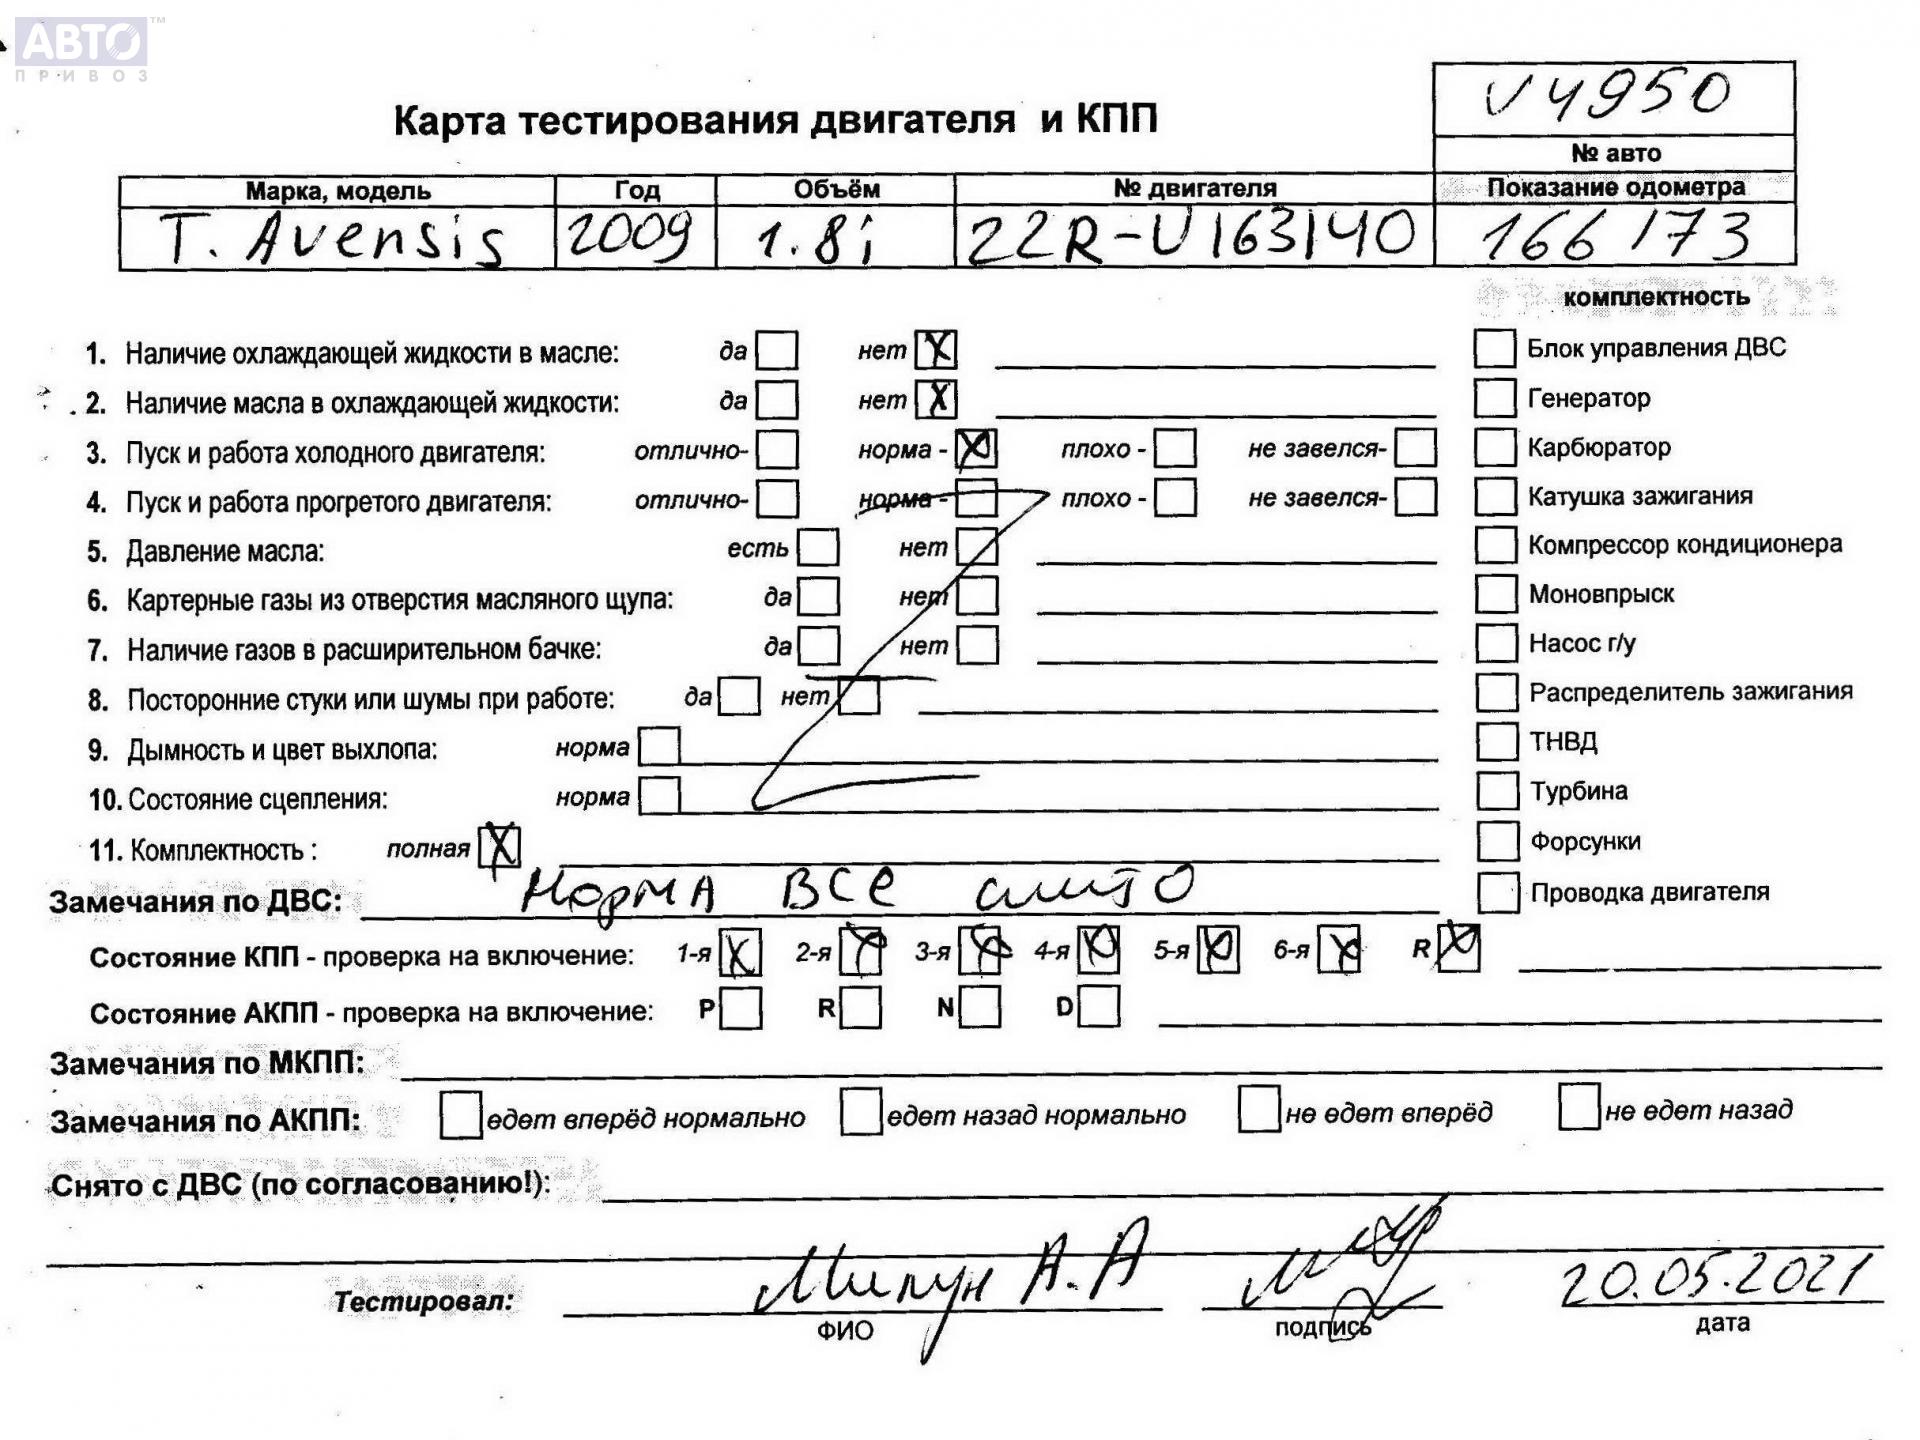 АВТО™
ПРИВОЗ
V4950
Карта тестирования двигателя и КПП
№ авто
Марка, модель Год Объём № двигателя Показание одометра
T. Avensis 2009 1.8i 2ZR-U163140 166173
комплектность
1. Наличие охлаждающей жидкости в масле: да нет X Блок управления ДВС
2. Наличие масла в охлаждающей жидкости: да нет X Генератор
3. Пуск и работа холодного двигателя: отлично- норма - X плохо - не завелся- Карбюратор
4. Пуск и работа прогретого двигателя: отлично- норма - плохо - не завелся- Катушка зажигания
5. Давление масла: есть нет Компрессор кондиционера
6. Картерные газы из отверстия масляного щупа: да нет Моновпрыск
7. Наличие газов в расширительном бачке: да нет Насос г/у
8. Посторонние стуки или шумы при работе: да нет Распределитель зажигания
9. Дымность и цвет выхлопа: норма ТНВД
10. Состояние сцепления: норма Турбина
11. Комплектность : полная X Форсунки
Замечания по ДВС: Норма все Проводка двигателя
Состояние КПП - проверка на включение: 1-я X 2-я X 3-я X 4-я X 5-я X 6-я X R X
Состояние АКПП - проверка на включение: P R N D
Замечания по МКПП:
Замечания по АКПП: едет вперёд нормально едет назад нормально не едет вперёд не едет назад
Снято с ДВС (по согласованию!):
Тестировал: А.А 20.05.2021
ФИО подпись дата